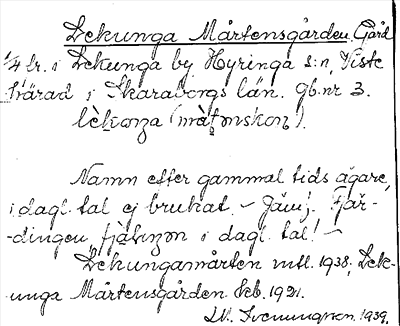 Lekunga Mårtensgården, Gård
1/4 hr. i Lekunga by Hyringa s:n, Viste
härad i Skaraborgs län. Gb. nr 3.
Namn efter gammal tids ägare,
i dagl. tal ej brukat. - Jämf. Fjär-
-dingen, i dagl. tal! -
Lekungamårten mtl. 1938, Lek-
unga Mårtensgården Ekb. 1921.
Svenungson. 1939.